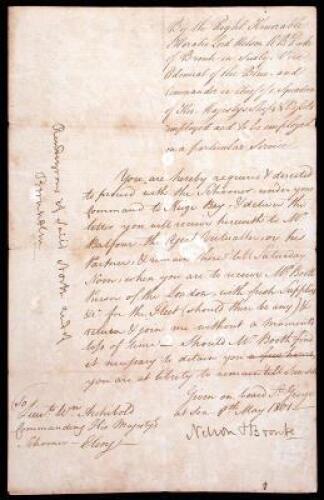 By the Right Honorable
Horatio Lord Nelson K.B. Duke
of Bronte in Sicily, Vice
Admiral of the Blue, and
Commander in Chief of a Squadron
of His Majesty's Ships & Vessels
employed and to be employed
on a particular Service
You are hereby required & directed
to proceed with the Schooner under your
Command to Kioge Bay, & deliver the
letter you will receive herewith to Mr
Balfour the Agent Victualler, or his
Partner, & remain there till Saturday
Noon, when you are to receive Mr Booth
Purser of the London, with fresh Supplies
&c. for the Fleet (should there be any) &
return & join me without a moments
loss of time — Should Mr Booth find
it necessary to detain you a
you are at liberty to remain till
Given on board St George
at Sea 8th May 1801
Nelson & Bronte
To
Lieut Wm Archibold
Commanding His Majesty's
Schooner — Cling
Rendezvous
Bornholm